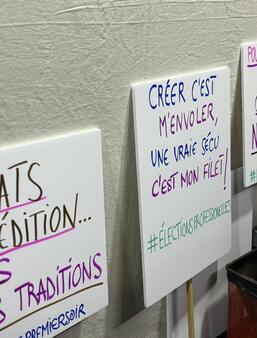 ATS
ÉDITION...
S
S TRADITIONS
PREMIERSOIR
CRÉER C'EST
M'ENVOLER,
UNE VRAIE SÉCU
C'EST MON FILET !
#ÉLECTIONSPROFESSIONELLES
POU
N
#